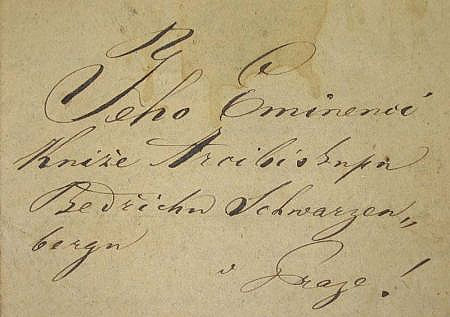 Jeho Eminencí
Kníže Arcibiskupu
Bedřichu Schwarzen„
bergu
v Praze!